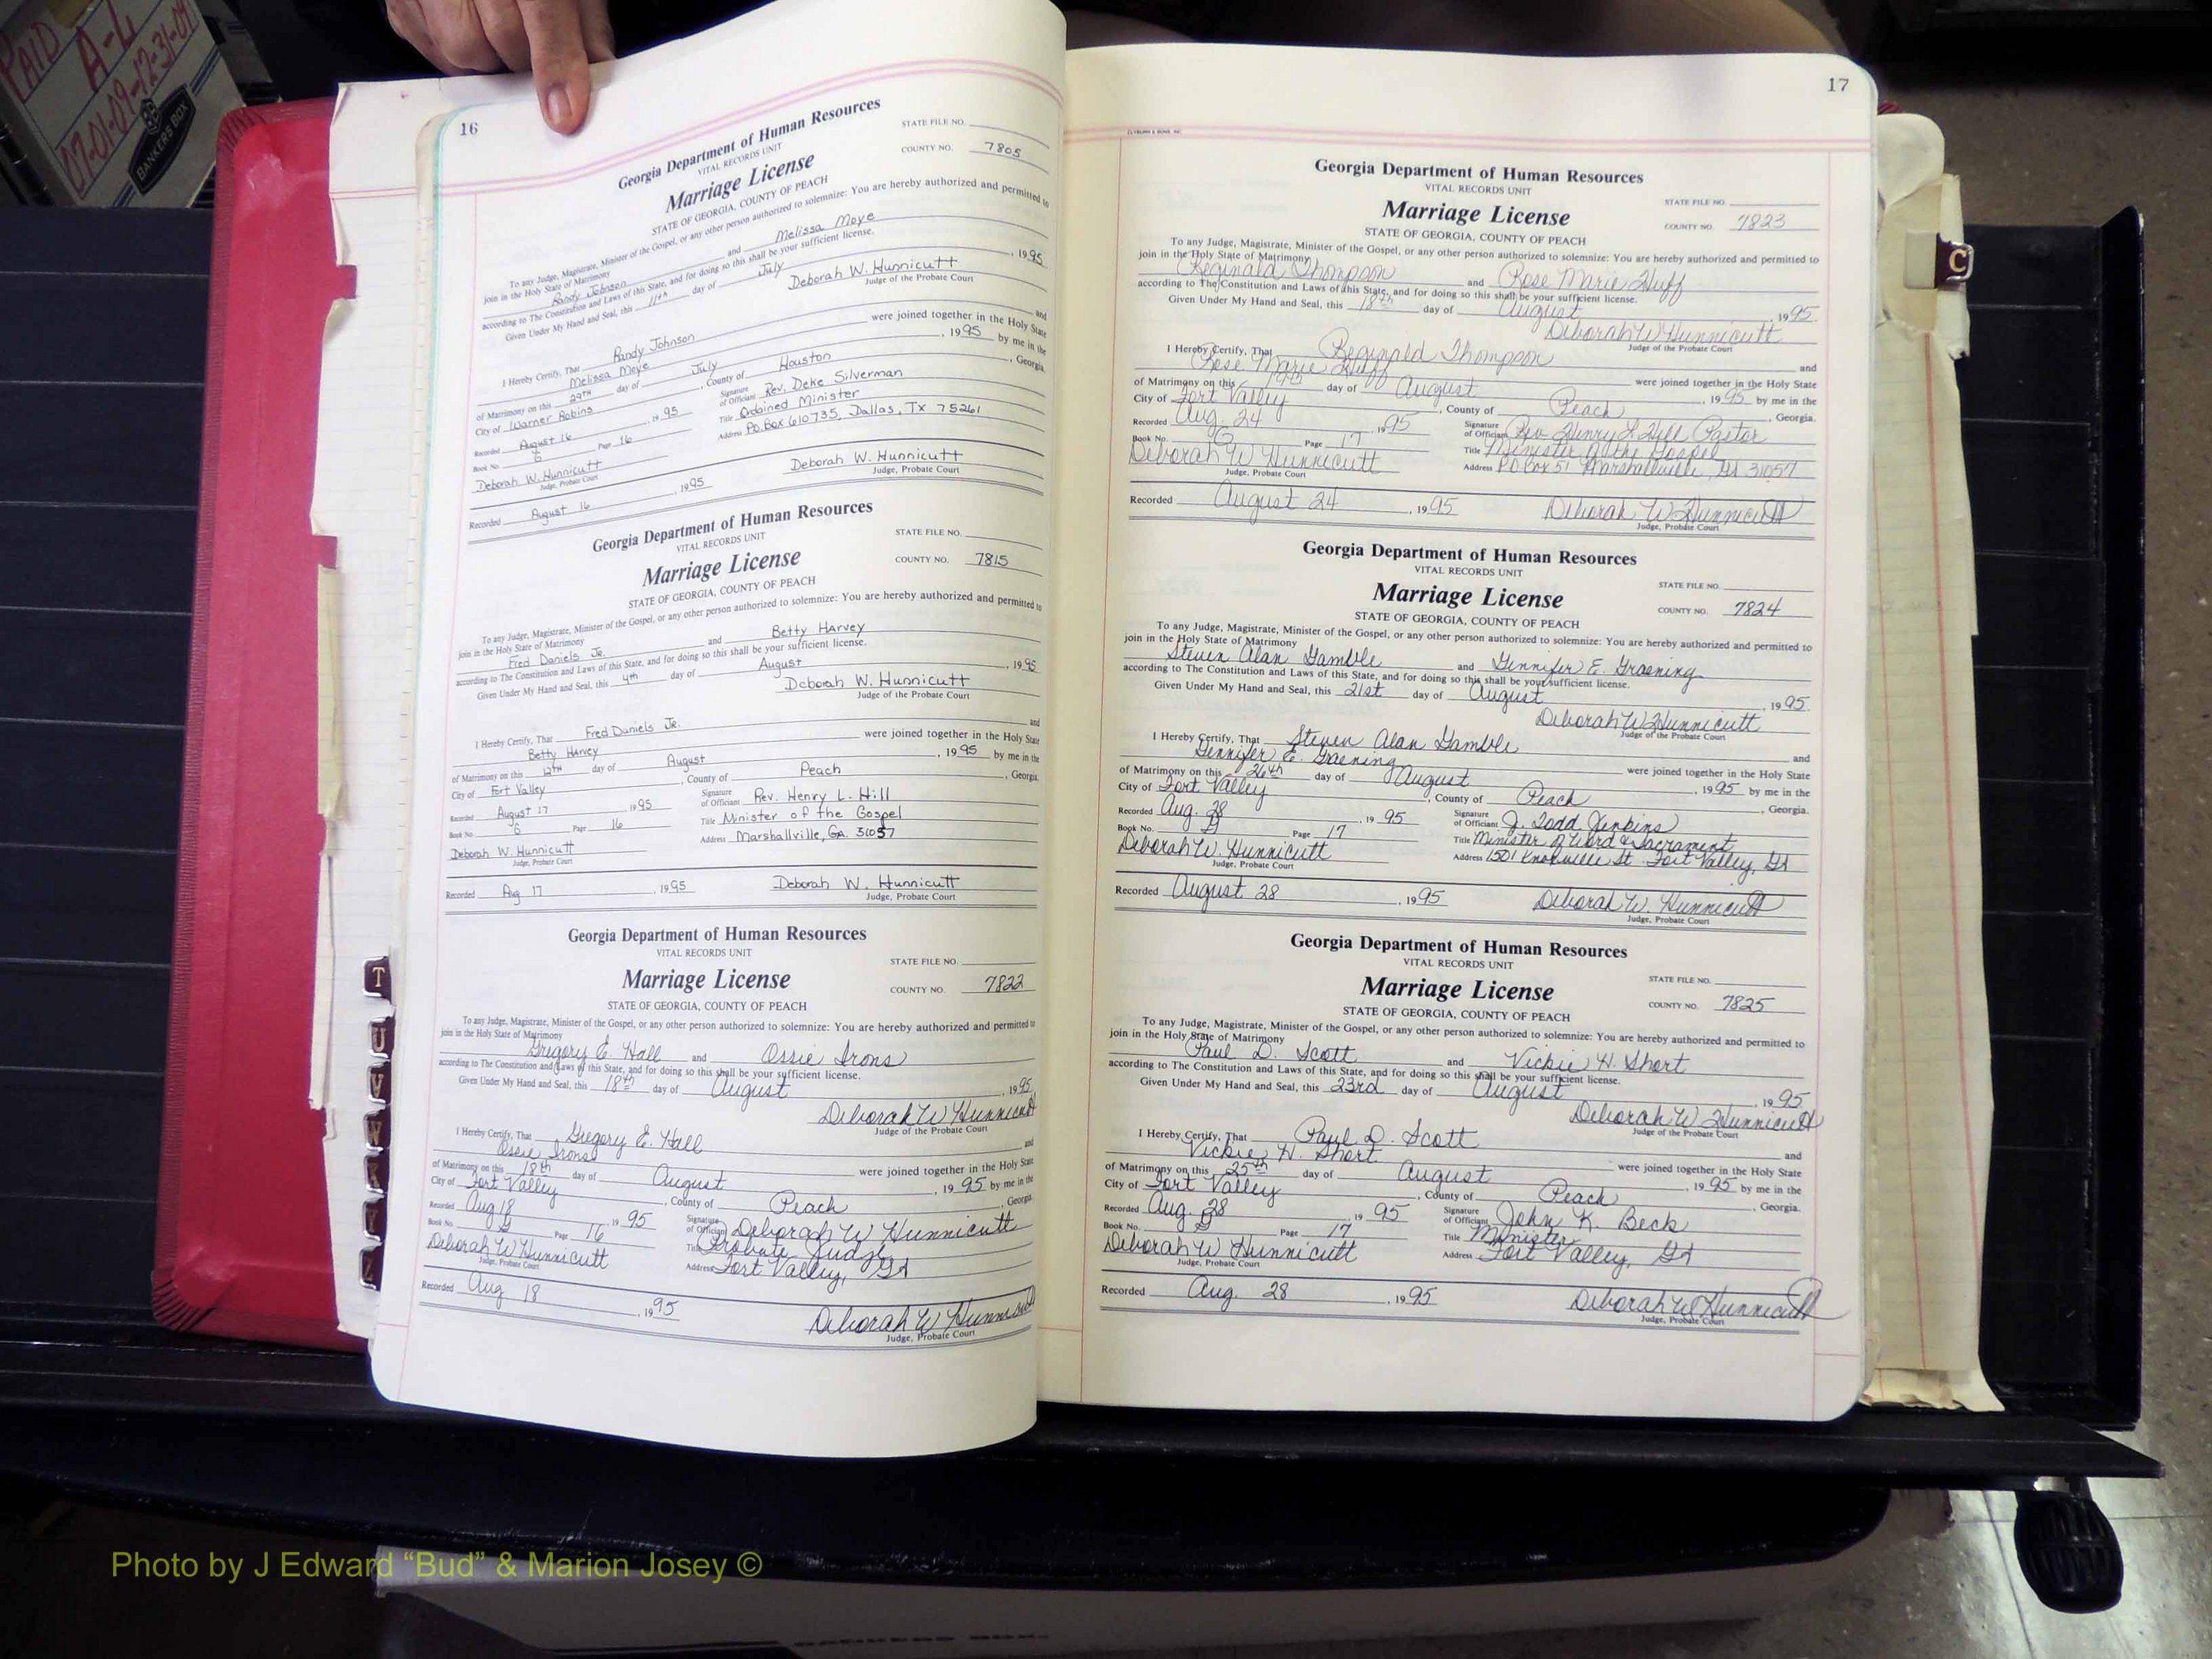 PAID
A-L
07-01-09-12-31-09
BANKERS BOX
16
Georgia Department of Human Resources
VITAL RECORDS UNIT
STATE FILE NO.
Marriage License
COUNTY NO. 7805
STATE OF GEORGIA, COUNTY OF PEACH
To any Judge, Magistrate, Minister of the Gospel, or any other person authorized to solemnize: You are hereby authorized and permitted to
join in the Holy State of Matrimony
Randy Johnson and Melissa Moye
according to The Constitution and Laws of this State, and for doing so this shall be your sufficient license.
Given Under My Hand and Seal, this 11th day of July , 1995
Deborah W. Hunnicutt
Judge of the Probate Court
I Hereby Certify, That Randy Johnson and
Melissa Moye were joined together in the Holy State
of Matrimony on this 29TH day of July , 1995 by me in the
City of Warner Robins , County of Houston , Georgia.
Recorded August 16 , 1995 Signature of Officiant Rev. Deke Silverman
Book No. 6 Page 16 Title Ordained Minister
Deborah W. Hunnicutt Address P.O. Box 610735, Dallas, Tx 75261
Judge, Probate Court
Recorded August 16 , 1995 Deborah W. Hunnicutt
Judge, Probate Court
Georgia Department of Human Resources
VITAL RECORDS UNIT
STATE FILE NO.
Marriage License
COUNTY NO. 7815
STATE OF GEORGIA, COUNTY OF PEACH
To any Judge, Magistrate, Minister of the Gospel, or any other person authorized to solemnize: You are hereby authorized and permitted to
join in the Holy State of Matrimony
Fred Daniels Jr. and Betty Harvey
according to The Constitution and Laws of this State, and for doing so this shall be your sufficient license.
Given Under My Hand and Seal, this 4th day of August , 1995
Deborah W. Hunnicutt
Judge of the Probate Court
I Hereby Certify, That Fred Daniels Jr. and
Betty Harvey were joined together in the Holy State
of Matrimony on this 12TH day of August , 1995 by me in the
City of Fort Valley , County of Peach , Georgia.
Recorded August 17 1995 Signature of Officiant Rev. Henry L. Hill
Book No. 6 Page 16 Title Minister of the Gospel
Deborah W. Hunnicutt Address Marshallville, GA. 31057
Judge, Probate Court
Recorded Aug 17 , 1995 Deborah W. Hunnicutt
Judge, Probate Court
Georgia Department of Human Resources
VITAL RECORDS UNIT
STATE FILE NO.
Marriage License
COUNTY NO. 7822
STATE OF GEORGIA, COUNTY OF PEACH
To any Judge, Magistrate, Minister of the Gospel, or any other person authorized to solemnize: You are hereby authorized and permitted to
join in the Holy State of Matrimony
Gregory E. Hall and Ossie Irons
according to The Constitution and Laws of this State, and for doing so this shall be your sufficient license.
Given Under My Hand and Seal, this 18th day of August , 1995
Deborah W Hunnicutt
Judge of the Probate Court
I Hereby Certify, That Gregory E. Hall and
Ossie Irons were joined together in the Holy State
of Matrimony on this 18th day of August , 1995 by me in the
City of Fort Valley , County of Peach , Georgia.
Recorded Aug 18 1995 Signature of Officiant Deborah W Hunnicutt
Book No. Page 16 Title Probate Judge
Deborah W Hunnicutt Address Fort Valley, GA
Judge, Probate Court
Recorded Aug 18 , 1995 Deborah W Hunnicutt
Judge, Probate Court
T
U
V
W
X
Y
Z
17
Georgia Department of Human Resources
VITAL RECORDS UNIT
STATE FILE NO.
Marriage License
COUNTY NO. 7823
STATE OF GEORGIA, COUNTY OF PEACH
To any Judge, Magistrate, Minister of the Gospel, or any other person authorized to solemnize: You are hereby authorized and permitted to
join in the Holy State of Matrimony
Reginald Thompson and Rose Marie Huff
according to The Constitution and Laws of this State, and for doing so this shall be your sufficient license.
Given Under My Hand and Seal, this 18th day of August , 1995
Deborah W Hunnicutt
Judge of the Probate Court
I Hereby Certify, That Reginald Thompson and
Rose Marie Huff were joined together in the Holy State
of Matrimony on this 19th day of August , 1995 by me in the
City of Fort Valley , County of Peach , Georgia.
Recorded Aug. 24 1995 Signature of Officiant Rev Henry L Hill Pastor
Book No. Page 17 Title Minister of the Gospel
Deborah W Hunnicutt Address PO Box 51 Marshallville, GA 31057
Judge, Probate Court
Recorded August 24 , 1995 Deborah W Hunnicutt
Judge, Probate Court
Georgia Department of Human Resources
VITAL RECORDS UNIT
STATE FILE NO.
Marriage License
COUNTY NO. 7824
STATE OF GEORGIA, COUNTY OF PEACH
To any Judge, Magistrate, Minister of the Gospel, or any other person authorized to solemnize: You are hereby authorized and permitted to
join in the Holy State of Matrimony
Steven Alan Gamble and Jennifer E. Graening
according to The Constitution and Laws of this State, and for doing so this shall be your sufficient license.
Given Under My Hand and Seal, this 21st day of August , 1995
Deborah W Hunnicutt
Judge of the Probate Court
I Hereby Certify, That Steven Alan Gamble and
Jennifer E. Graening were joined together in the Holy State
of Matrimony on this 26th day of August , 1995 by me in the
City of Fort Valley , County of Peach , Georgia.
Recorded Aug. 28 , 1995 Signature of Officiant J. Todd Jenkins
Book No. Page 17 Title Minister of Word & Sacrament
Deborah W. Hunnicutt Address 1501 Knoxville St. Fort Valley, GA
Judge, Probate Court
Recorded August 28 , 1995 Deborah W. Hunnicutt
Judge, Probate Court
Georgia Department of Human Resources
VITAL RECORDS UNIT
STATE FILE NO.
Marriage License
COUNTY NO. 7825
STATE OF GEORGIA, COUNTY OF PEACH
To any Judge, Magistrate, Minister of the Gospel, or any other person authorized to solemnize: You are hereby authorized and permitted to
join in the Holy State of Matrimony
Paul D. Scott and Vickie H. Short
according to The Constitution and Laws of this State, and for doing so this shall be your sufficient license.
Given Under My Hand and Seal, this 23rd day of August , 1995
Deborah W Hunnicutt
Judge of the Probate Court
I Hereby Certify, That Paul D. Scott and
Vickie H. Short were joined together in the Holy State
of Matrimony on this 25th day of August , 1995 by me in the
City of Fort Valley , County of Peach , Georgia.
Recorded Aug. 28 , 1995 Signature of Officiant John K. Beck
Book No. Page 17 Title Minister
Deborah W Hunnicutt Address Fort Valley, GA
Judge, Probate Court
Recorded Aug. 28 , 1995 Deborah W Hunnicutt
Judge, Probate Court
C
Photo by J Edward “Bud” & Marion Josey ©